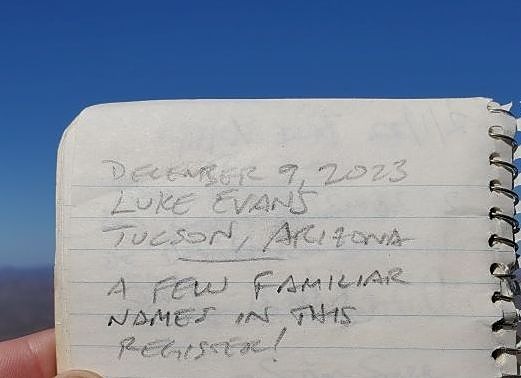 DECEMBER 9, 2023
LUKE EVANS
TUCSON, ARIZONA
A FEW FAMILIAR
NAMES IN THIS
REGISTER!